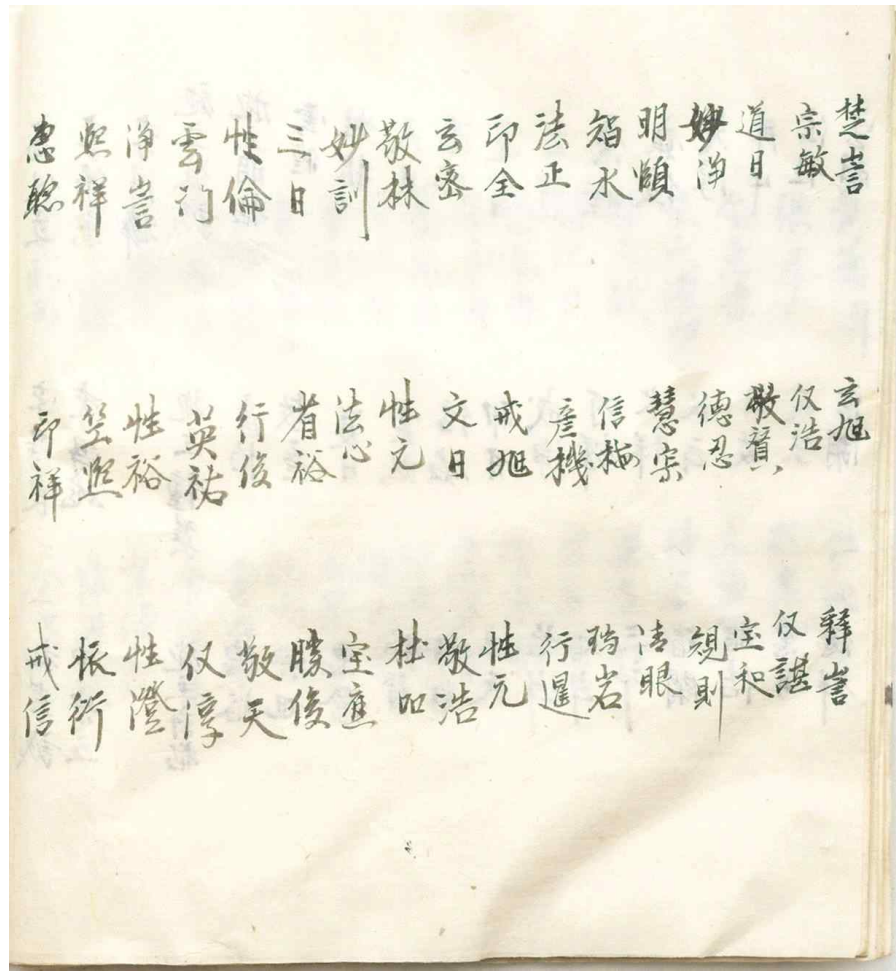 楚訔
宗敏
道日
妙淨
明順
智水
法正
印全
玄密
敬林
妙訓
三日
性倫
雲訂
淨訔
熙祥
惠聰
玄旭
仅浩
敬贇
德忍
慧宗
信梅
彦機
戒旭
文日
性元
法心
省裕
行俊
英祐
性裕
笠熙
印祥
釋訔
仅諶
宝和
規則
清眼
瑞岩
行暹
性元
敬浩
杜㕥
宝應
勝俊
敬天
仅淳
性澄
振衍
戒信